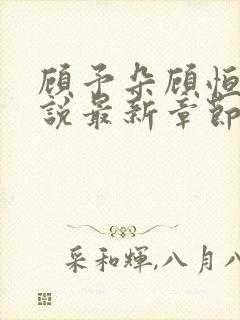 顾予朵顾恒
說最新章節
采和輝,八月八